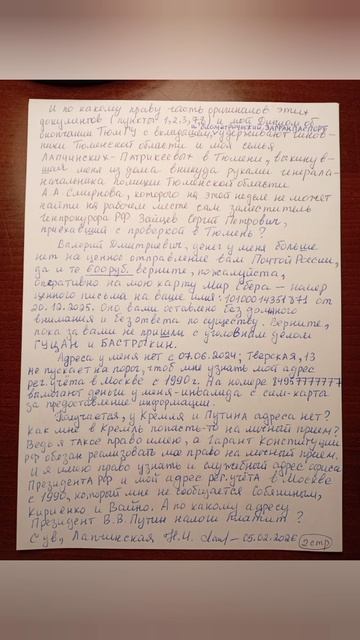 И по какому праву часть оригиналов этих
документов (пункты 1,2,3,7,8) и мой Диплом об
и биометрический загранпаспорт
окончании ТюмГУ с вкладышем, удерживают чинов-
ники Тюменской области и моя семья
Лапчинских-Патрикеевых в Тюмени, выкинув-
шая меня из дома вникуда руками генерала-
начальника полиции Тюменской области
А.А Смирнова, которого на этой неделе не может
найти на рабочем месте сам заместитель
генпрокурора РФ Зайцев Сергей Петрович,
приехавший с проверкой в Тюмень?
Валерий Дмитриевич, денег у меня больше
нет на ценное отправление вам Почтой России,
да и те 600руб. верните, пожалуйста,
оперативно на мою карту Мир Сбера - номер
ценного письма на ваше имя: 10100014351371 от
20.12.2025. Оно вами оставлено без должного
внимания и без ответа по существу. Верните,
пока за вами не пришли с уголовным делом
ГУЦАН и БАСТРЫКИН.
Адреса у меня нет с 07.06.2024; Тверская, 13
не пускает на порог, чтоб мне узнать мой адрес
рег.учёта в Москве с 1990г. На номере 84957777777
выдывают деньги у меня-инвалида с сим-карта
за предоставление информации.
Получается, у Кремля и Путина адреса нет?
Как мне в Кремль попасть-то на личный приём?
Ведь я такое право имею, а Гарант Конституции
РФ обязан реализовать моё право на личный приём.
И я имею право узнать и служебный адрес офиса
Президента РФ и мой адрес рег.учета в Москве
с 1990, который мне не сообщается Собяниным,
Кириенко и Вайно. А по какому адресу
Президент В.В.Путин налоги платит?
С ув, Лапчинская Н.И. 05.02.2026
2 стр